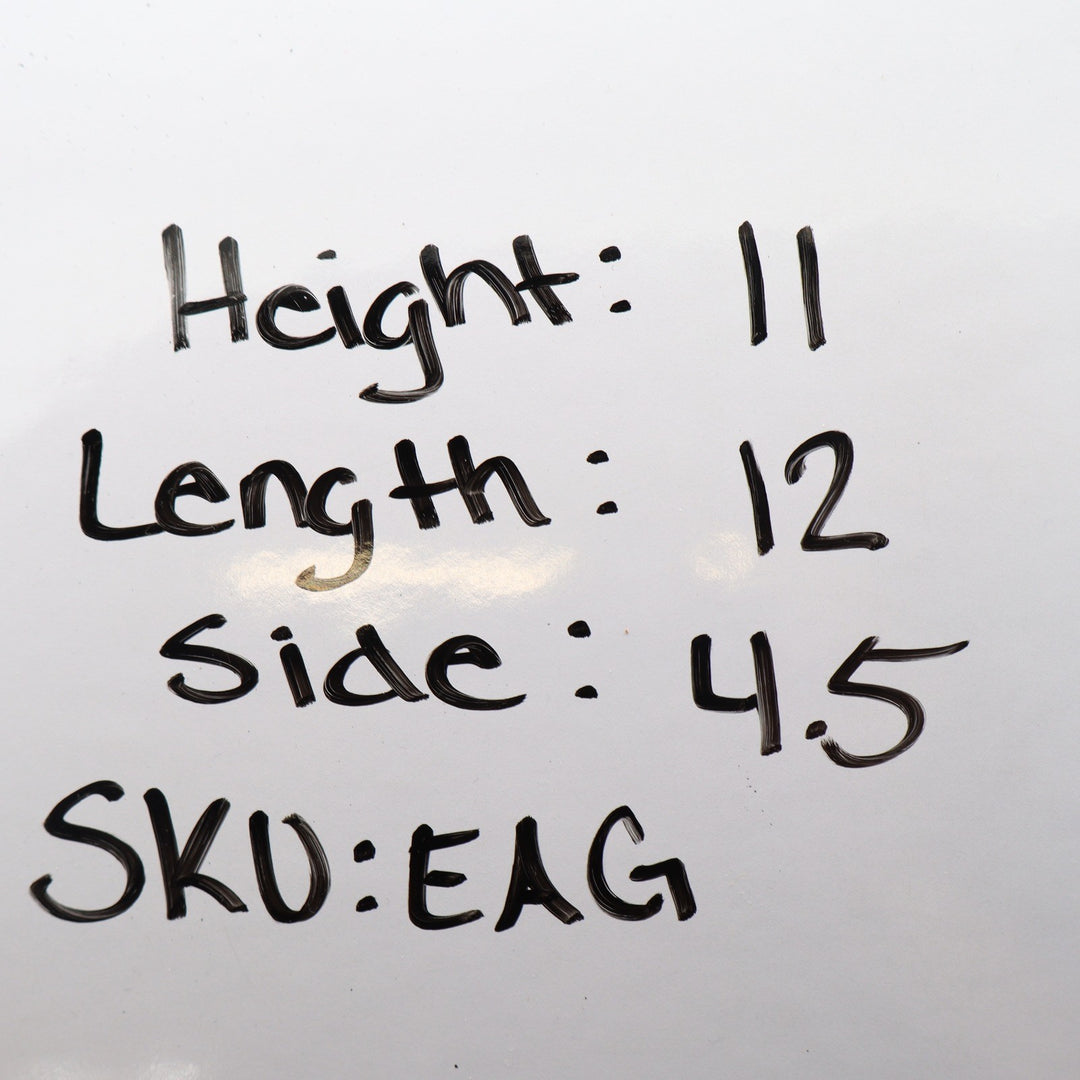 Height: 11
Length: 12
Side: 4.5
SKU: EAG